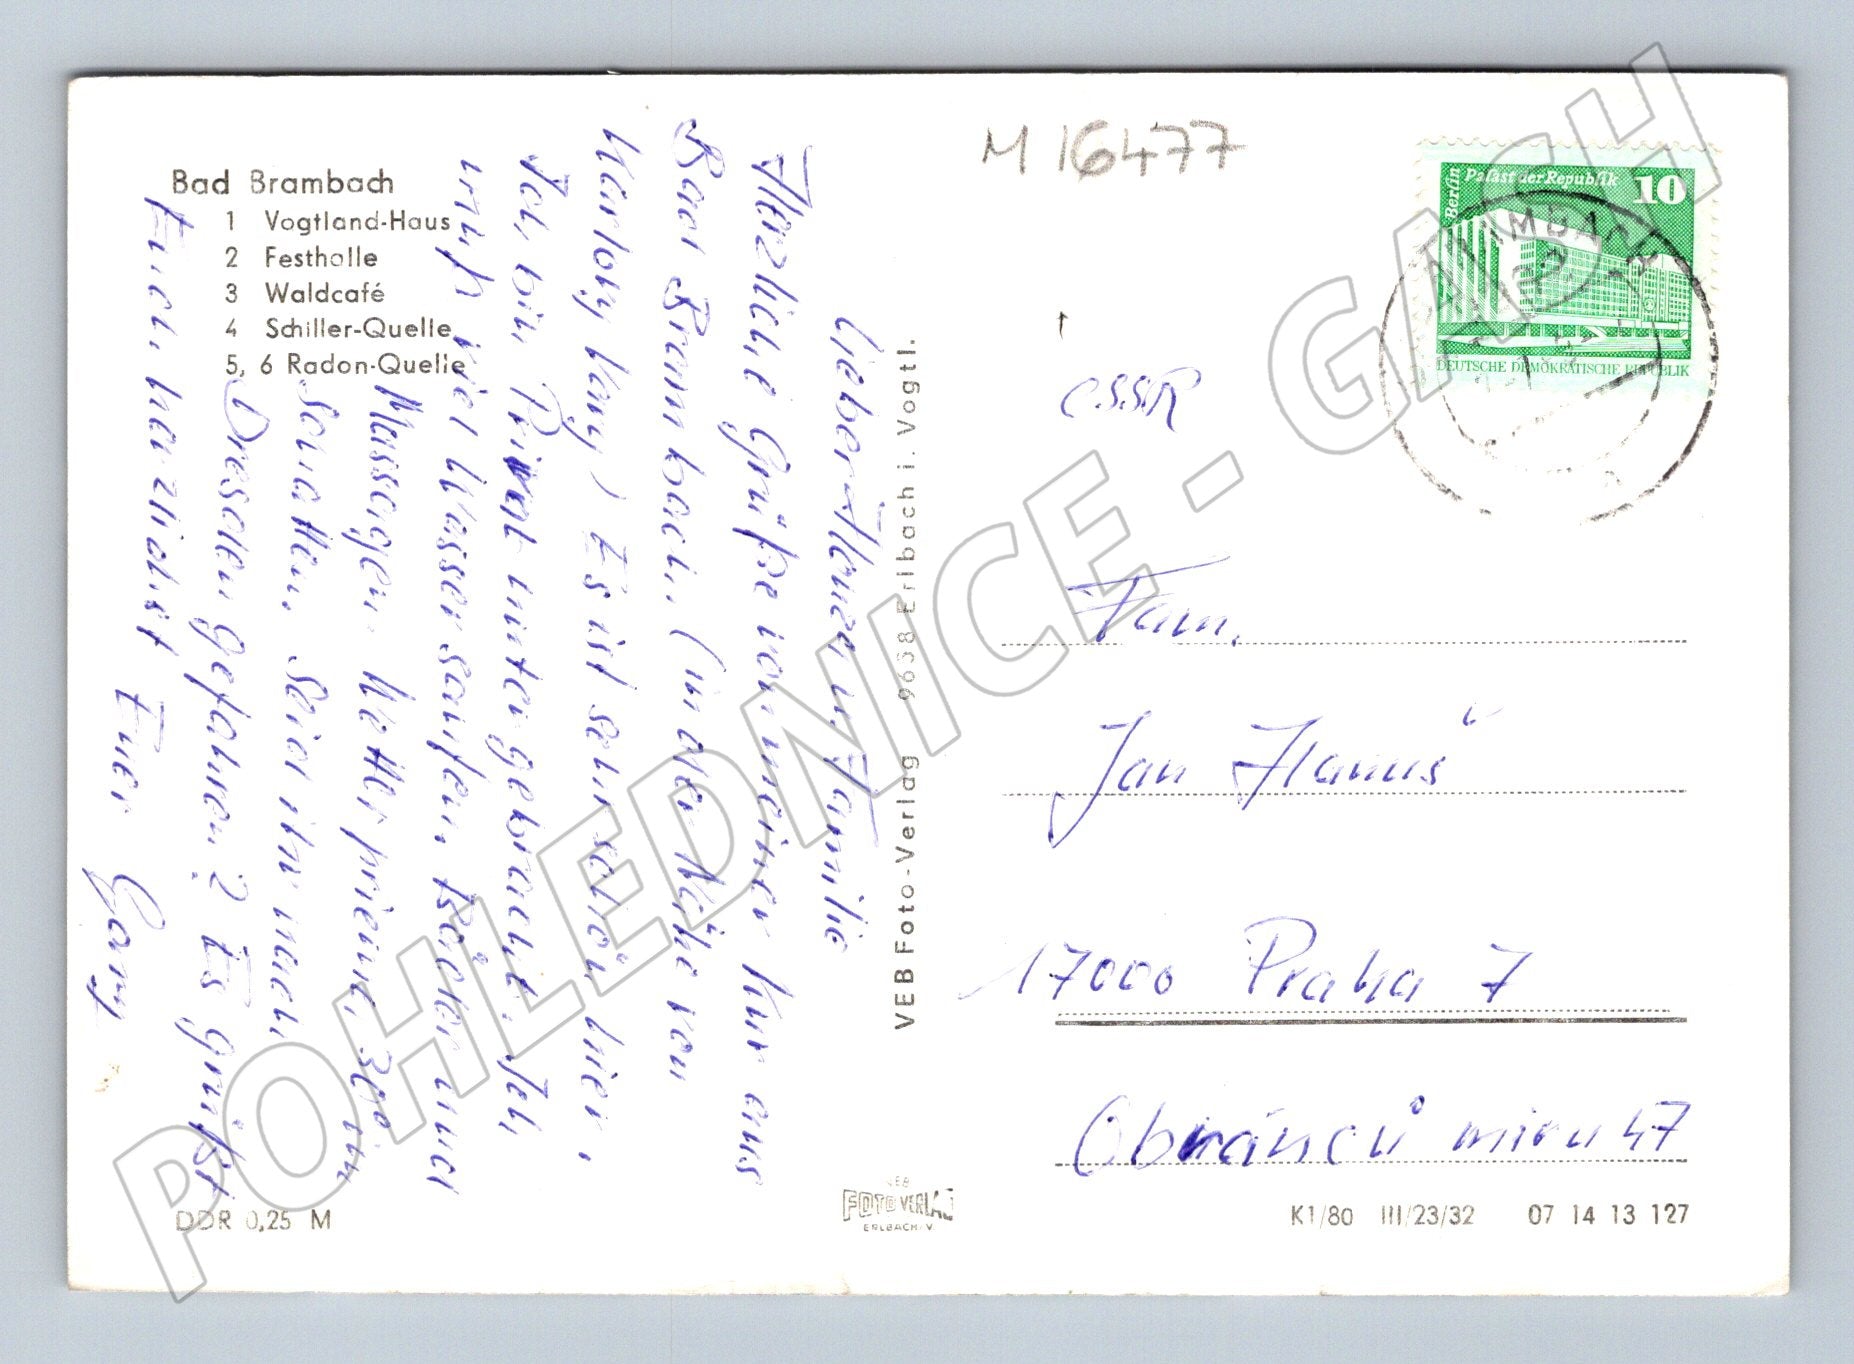 Bad Brambach
1 Vogtland-Haus
2 Festhalle
3 Waldcafé
4 Schiller-Quelle
5, 6 Radon-Quelle
Lieber Herr u. Familie
Herzliche Grüße von meiner Kur aus
Bad Brambach, (in der Nähe von
Karlovy Vary) Es ist sehr schön hier,
Ich bin Privat untergebracht. Ich
muß viel Wasser saufen, Bäder und
Massagen. Wetter prima, 30° im
Schatten. Seid ihr nach
Dresden gefahren? Es grüßt
Euch herzlichst Euer
VEB Foto-Verlag 9658 Erlbach i. Vogtl.
DDR 0,25 M
VEB
FOTO VERLAG
ERLBACH/V.
M 16477
Berlin
Palast der Republik
10
DEUTSCHE DEMOKRATISCHE REPUBLIK
ČSSR
Fam.
Jan Hanuš
17000 Praha 7
Obránců míru 47
K1/80 III/23/32 07 14 13 127
POHLEDNICE - GASH